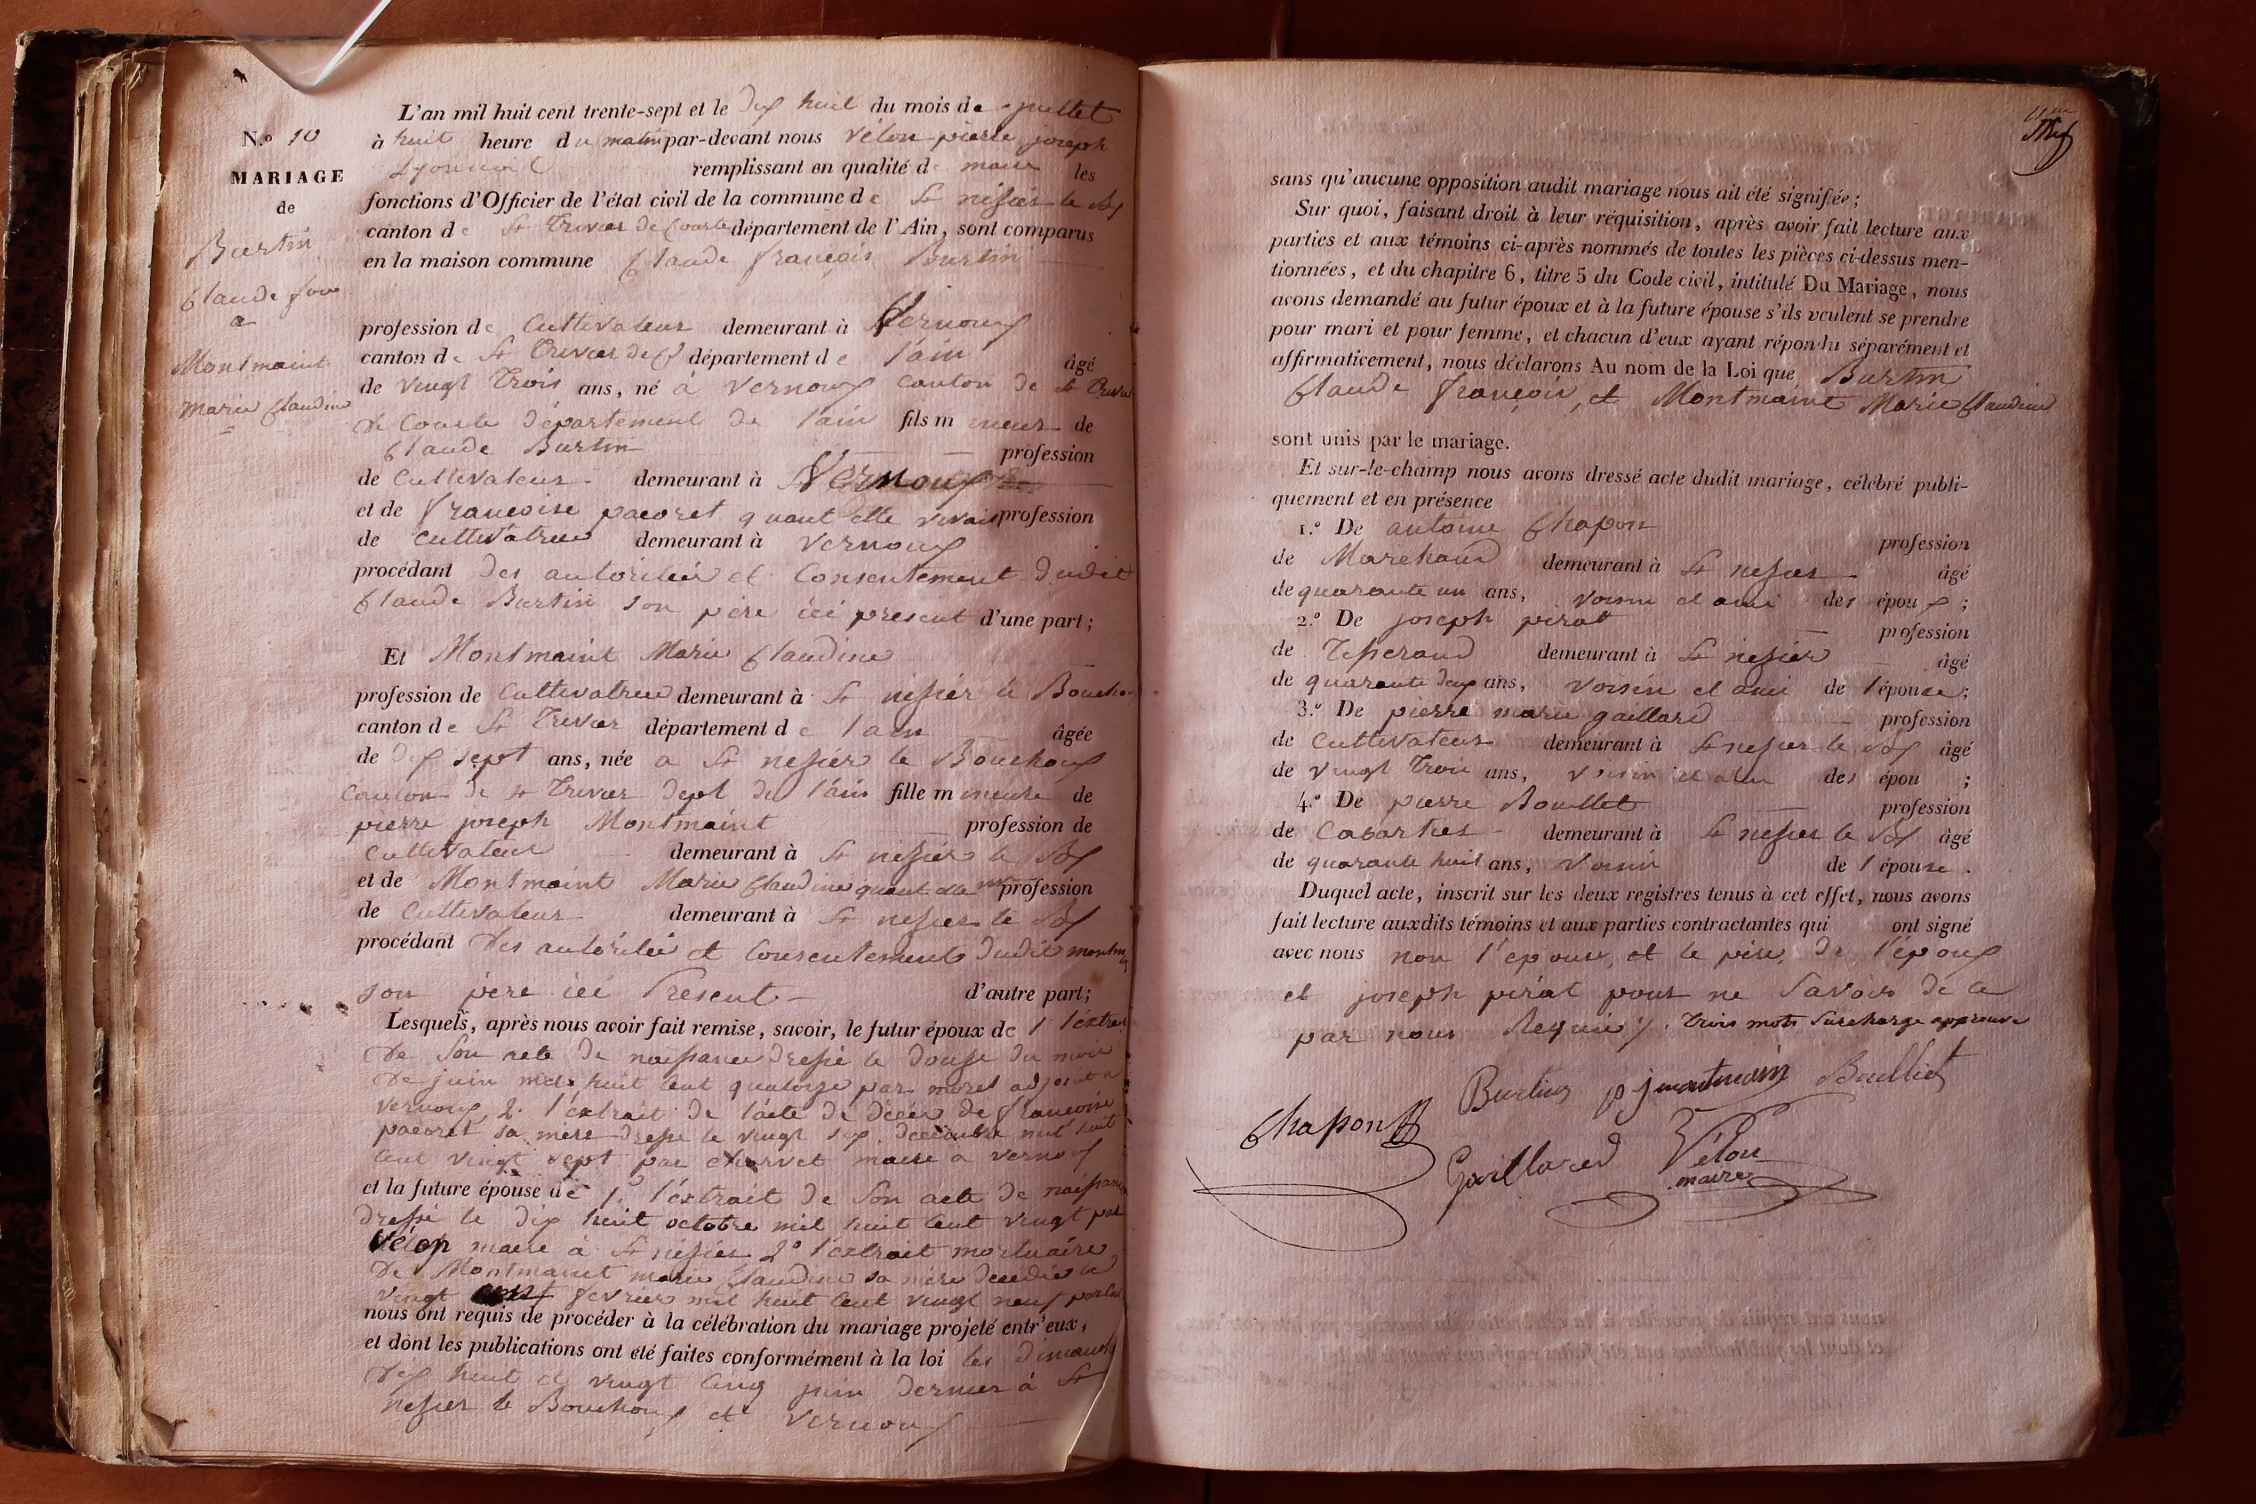 N.o 10
MARIAGE
de
Burtin
Claude fois
a
Montmaint
Marie Claudine
L'an mil huit cent trente-sept et le dix huit du mois de juillet
à huit heure du matin par-devant nous Vélon pierre joseph
remplissant en qualité de maire les
fonctions d'Officier de l'état civil de la commune de St nisier le
canton de St Trivier de Courte département de l'Ain, sont comparus
en la maison commune Claude françois Burtin
profession de Cultivateur demeurant à Vernoux
canton de St Trivier de C département de l'ain âgé
de vingt trois ans, né à Vernoux canton de St Trivier
de Courte département de l'ain fils mineur de
Claude Burtin profession
de Cultivateur demeurant à Vernoux
et de françoise pacoret quant elle vivait profession
de cultivatrice demeurant à Vernoux
procédant des autorités et Consentement dudit
Claude Burtin son père ici present d'une part;
Et Montmaint Marie Claudine
profession de Cultivatrice demeurant à St nisier le Bouchoux
canton de St Trivier département de l'ain âgée
de dix sept ans, née a St nisier le Bouchoux
Canton de St Trivier dept de l'ain fille mineure de
pierre joseph Montmaint profession de
Cultivateur demeurant à St nisier le
et de Montmaint Marie Claudine quant profession
de Cultivateur demeurant à St nisier le
procédant des autorités et Consentement dudit montm
son père ici Present d'autre part;
Lesquels, après nous avoir fait remise, savoir, le futur époux de 1 l'extrait
De Son acte de naissance dressé le douze du mois
De juin mil huit Cent quatorze par morel adjoint a
Vernoux, 2. l'extrait de l'acte de décès de françoise
pacoret sa mère dressé le vingt six decembre mil huit
Cent vingt sept par charvet maire a vernoux
et la future épouse de 1.o l'extrait de Son acte de naissance
dressé le dix huit octobre mil huit Cent vingt par
Vélon maire à St nisier 2o l'extrait mortuaire
De Montmaint marie Claudine sa mère décédée le
vingt fevrier mil huit Cent vingt neuf
nous ont requis de procéder à la célébration du mariage projeté entr'eux,
et dont les publications ont été faites conformément à la loi les dimanche
Dix huit et vingt Cinq juin dernier à St
nisier le Bouchoux et Vernoux
sans qu'aucune opposition audit mariage nous ait été signifiée;
Sur quoi, faisant droit à leur réquisition, après avoir fait lecture aux
parties et aux témoins ci-après nommés de toutes les pièces ci-dessus men-
tionnées, et du chapitre 6, titre 5 du Code civil, intitulé Du Mariage, nous
avons demandé au futur époux et à la future épouse s'ils veulent se prendre
pour mari et pour femme, et chacun d'eux ayant répondu séparément et
affirmativement, nous déclarons Au nom de la Loi que Burtin
Claude françois, et Montmaint Marie Claudine
sont unis par le mariage.
Et sur-le-champ nous avons dressé acte dudit mariage, célébré publi-
quement et en présence
1.o De antoine Chapon profession
de Marchand demeurant à St nisier âgé
de quarante un ans, voisin et ami des époux;
2.o De joseph pirat profession
de Tisserand demeurant à St nisier âgé
de quarante deux ans, voisin et ami de l'épouse;
3.o De pierre marie gaillard profession
de Cultivateur demeurant à St nisier le âgé
de vingt trois ans, voisin et ami des épou ;
4.o De pierre Bouillet profession
de Cabartier demeurant à St nisier le âgé
de quarante huit ans, voisin de l'épouse.
Duquel acte, inscrit sur les deux registres tenus à cet effet, nous avons
fait lecture auxdits témoins et aux parties contractantes qui ont signé
avec nous non l'épouse, et le père de l'époux
et joseph pirat pour ne Savoir de ce
par nous Requis. trois mots Surcharge approuvé
Burtin pj montmain Boulliet
Chapon
Gaillard Vélon
maire